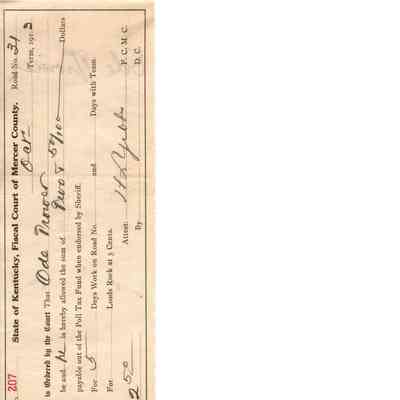 207 State of Kentucky, Fiscal Court of Mercer County. Road No. 31
Oct Term, 191 3
is Ordered by the Court That Ode
be and he is hereby allowed the sum of Two & 50/100 Dollars
payable out of the Poll Tax Fund when endorsed by Sheriff.
For 5 Days Work on Road No. and Days with Team
For Loads Rock at 5 Cents.
Attest: F. C. M. C.
2 50 By D. C.